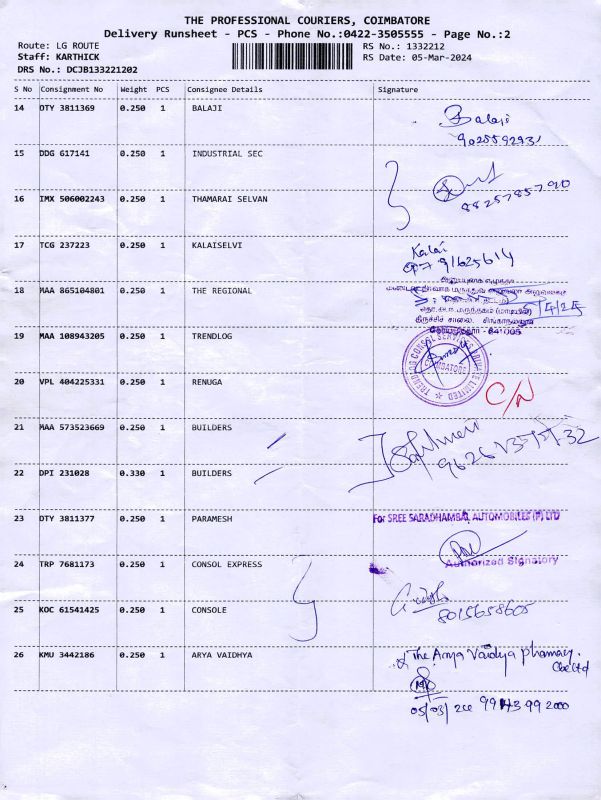 THE PROFESSIONAL COURIERS, COIMBATORE
Delivery Runsheet - PCS - Phone No.:0422-3505555 - Page No.:2
Route: LG ROUTE RS No.: 1332212
Staff: KARTHICK RS Date: 05-Mar-2024
DRS No.: DCJB133221202
S No Consignment No Weight PCS Consignee Details Signature
14 DTY 3811369 0.250 1 BALAJI Balaji
15 DDG 617141 0.250 1 INDUSTRIAL SEC
16 IMX 506002243 0.250 1 THAMARAI SELVAN 8825785790
17 TCG 237223 0.250 1 KALAISELVI Kalai
18 MAA 865104801 0.250 1 THE REGIONAL
19 MAA 108943205 0.250 1 TRENDLOG
TRENDLOG CONSOL SERVICES PRIVATE LIMITED
COIMBATORE
20 VPL 404225331 0.250 1 RENUGA C/N
21 MAA 573523669 0.250 1 BUILDERS
22 DPI 231028 0.330 1 BUILDERS
23 DTY 3811377 0.250 1 PARAMESH For SREE SARADHAMBAL AUTOMOBILES (P) LTD
Authorized Signatory
24 TRP 7681173 0.250 1 CONSOL EXPRESS
25 KOC 61541425 0.250 1 CONSOLE 8015658605
26 KMU 3442186 0.250 1 ARYA VAIDHYA The Arya Vaidya pharmacy.
Cbe Ltd
05/03/24